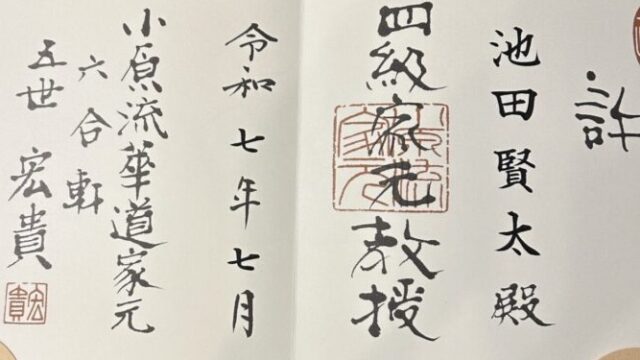 許
池田賢太殿
四級家元教授
令和七年七月
小原流華道家元
六合軒
五世 宏貴
宏貴